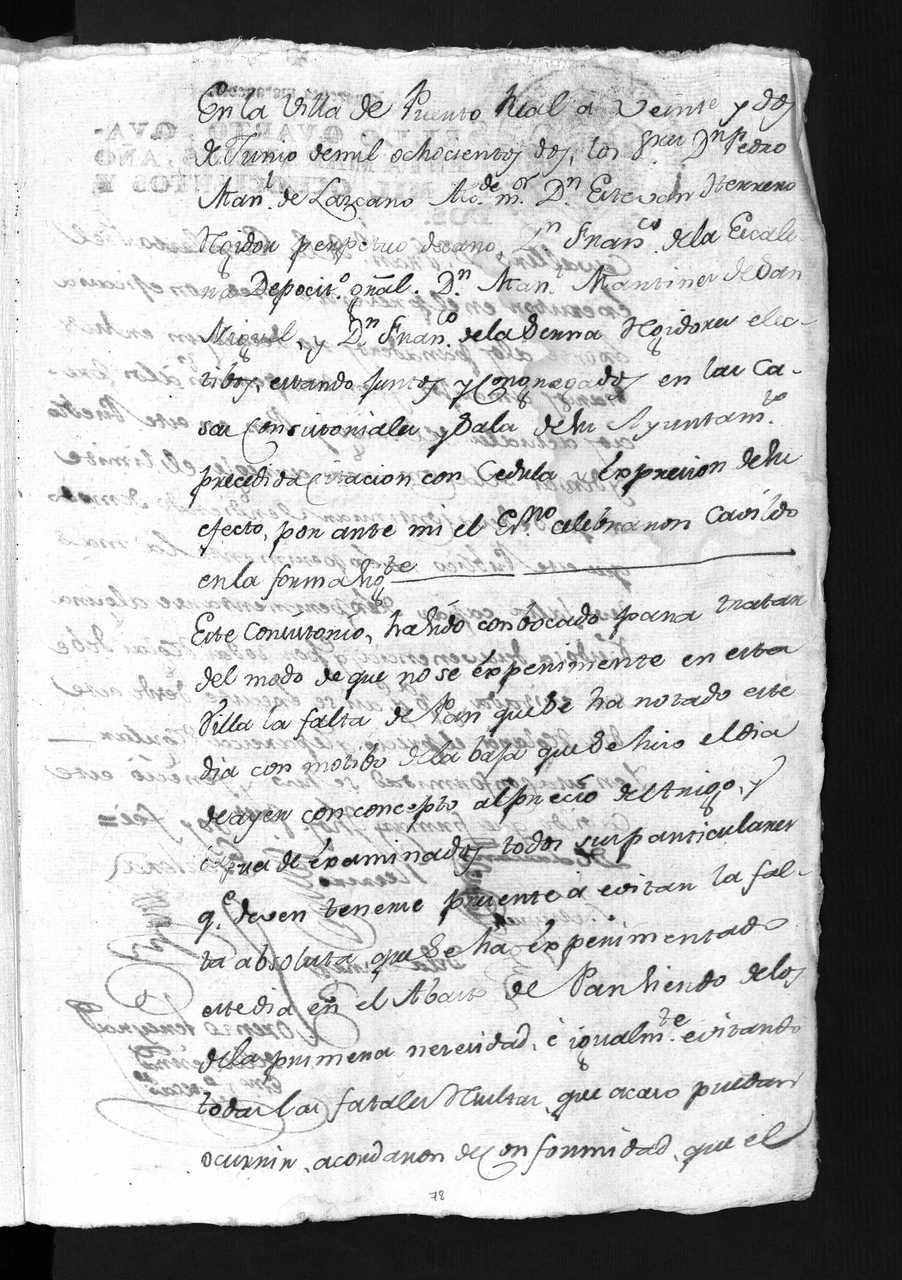 En la Villa de Puerto Real a veinte y dos
de Junio de mil ochocientos dos, los Sres Dn Pedro
Manl. de Lazcano Alcde. mor. Dn Estevan Herrero
Rexidor perpetuo decano, Dn Franco. de la Escale
ra Deposito. gnãl. Dn. Manl. Martinez de San
Miguel, y Dn Franco. de la Serna Rexidores elec-
tibos, estando juntos y Congregados en las Ca-
sas Consistoriales y Sala de su Ayuntamto.
precedida citacion con Cedula y Expresion de su
efecto, por ante mi el Essno. celebraron Cavildo
en la forma sigte
Este Consistorio, ha sido conbocado para tratar
del modo de que no se experimente en esta
Villa la falta de Pan que se ha notado este
dia con motibo de la baja que se hizo el dia
de ayer con concepto al precio del trigo, y
despues de examinados todos sus particulares
qe. deven tenerse presente a evitar la fal-
ta absoluta que se ha experimentado
este dia en el Abasto de Pan siendo de los
de la primera necesidad, è igualmte. evitando
todas las fatales resultas, que acaso puedan
ocurrir, acordaron de conformidad, que el
78